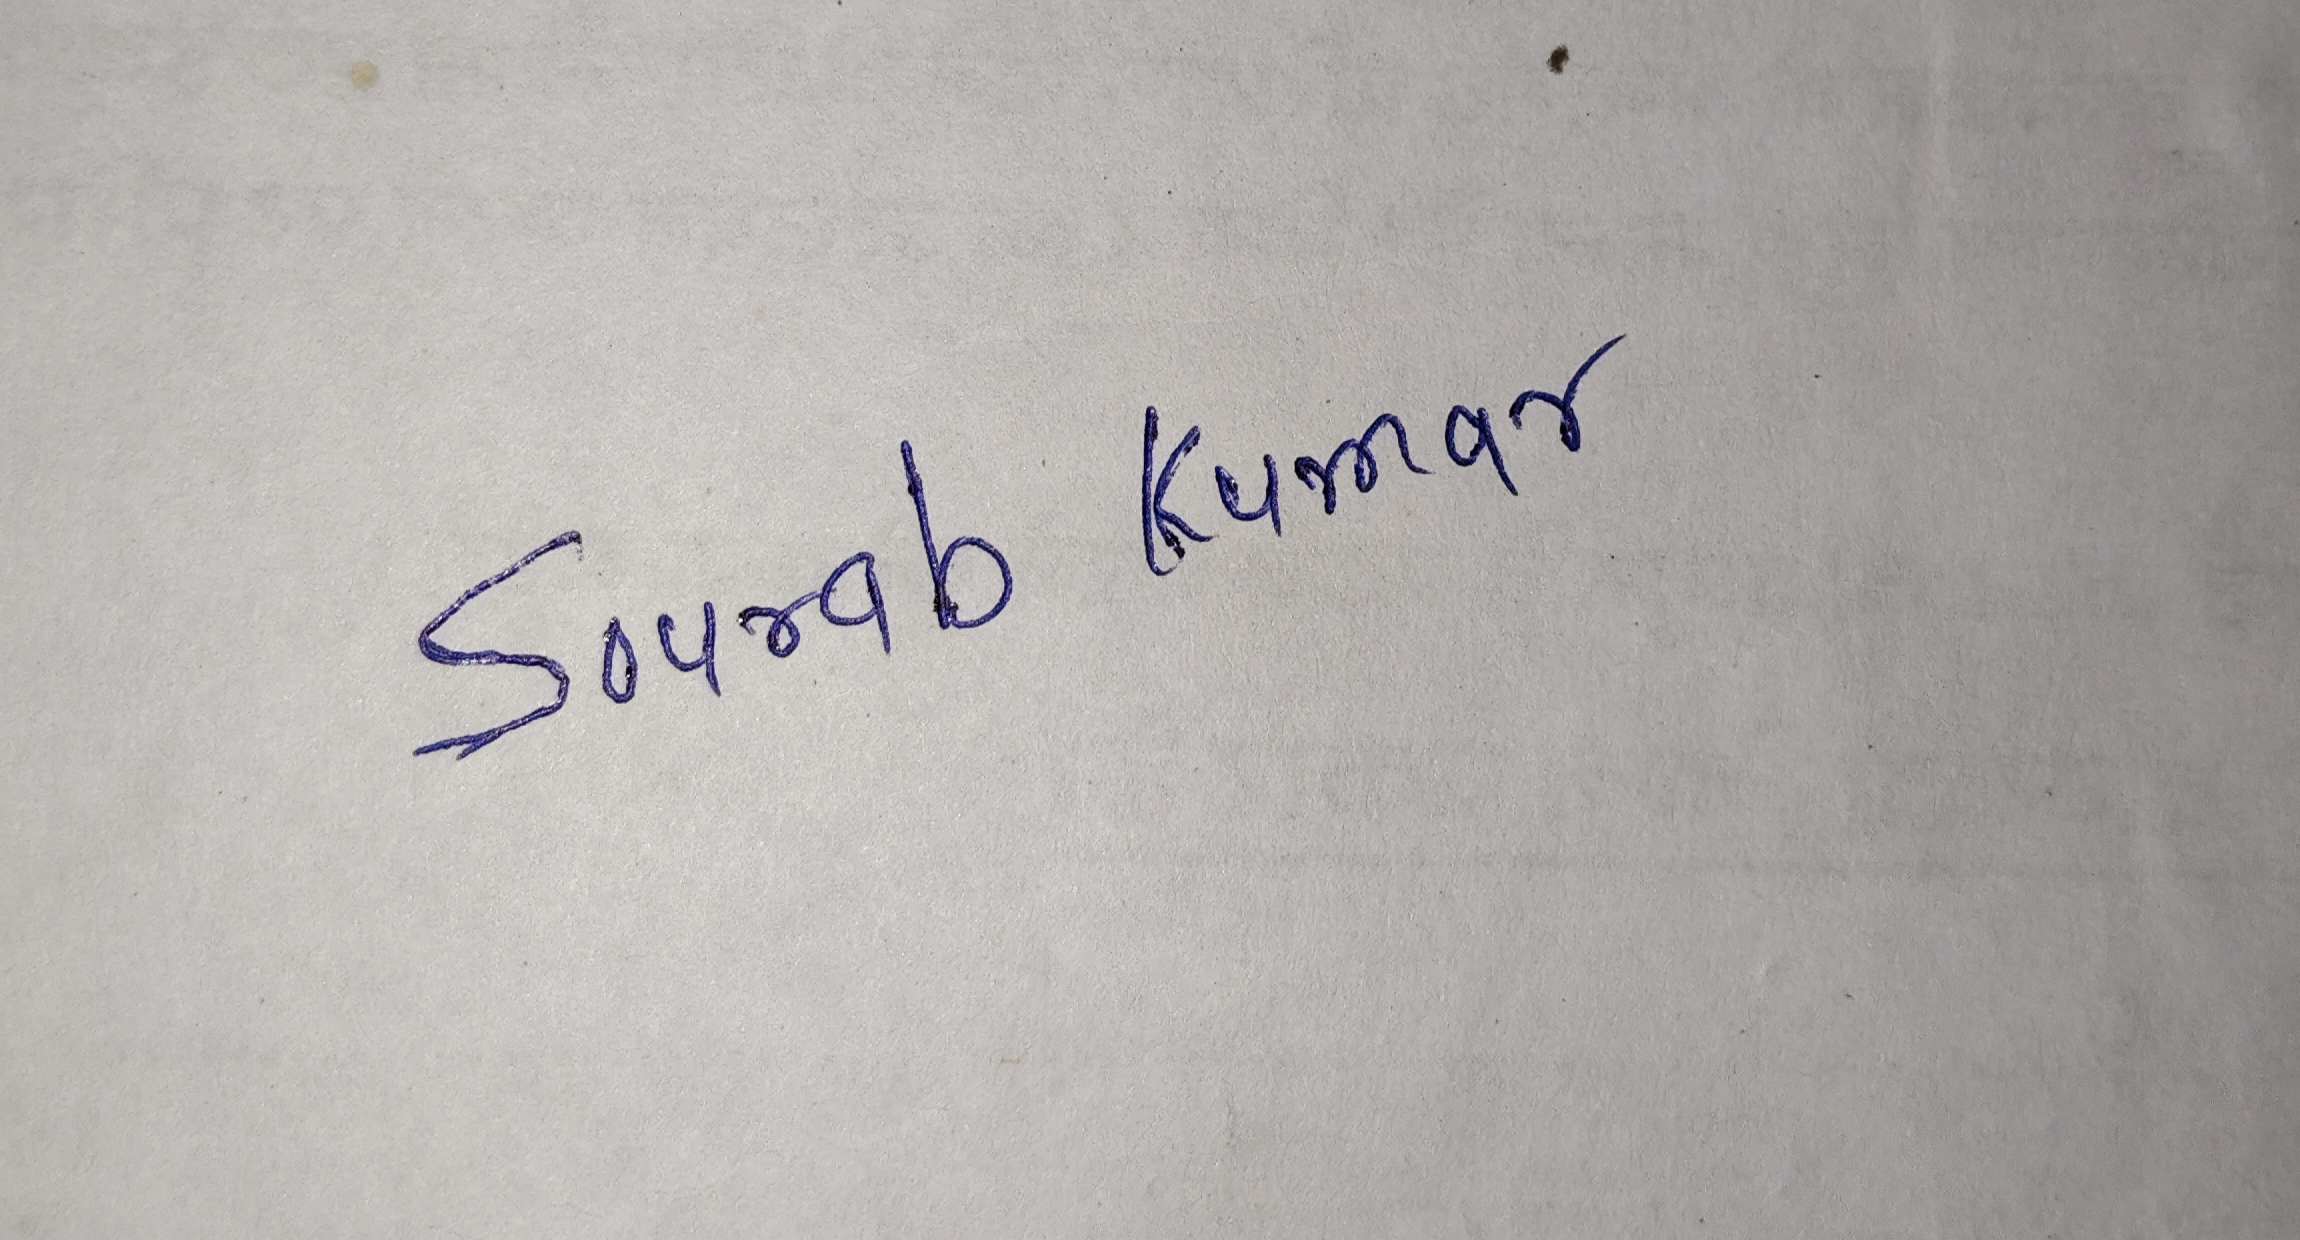 Sourab Kumar